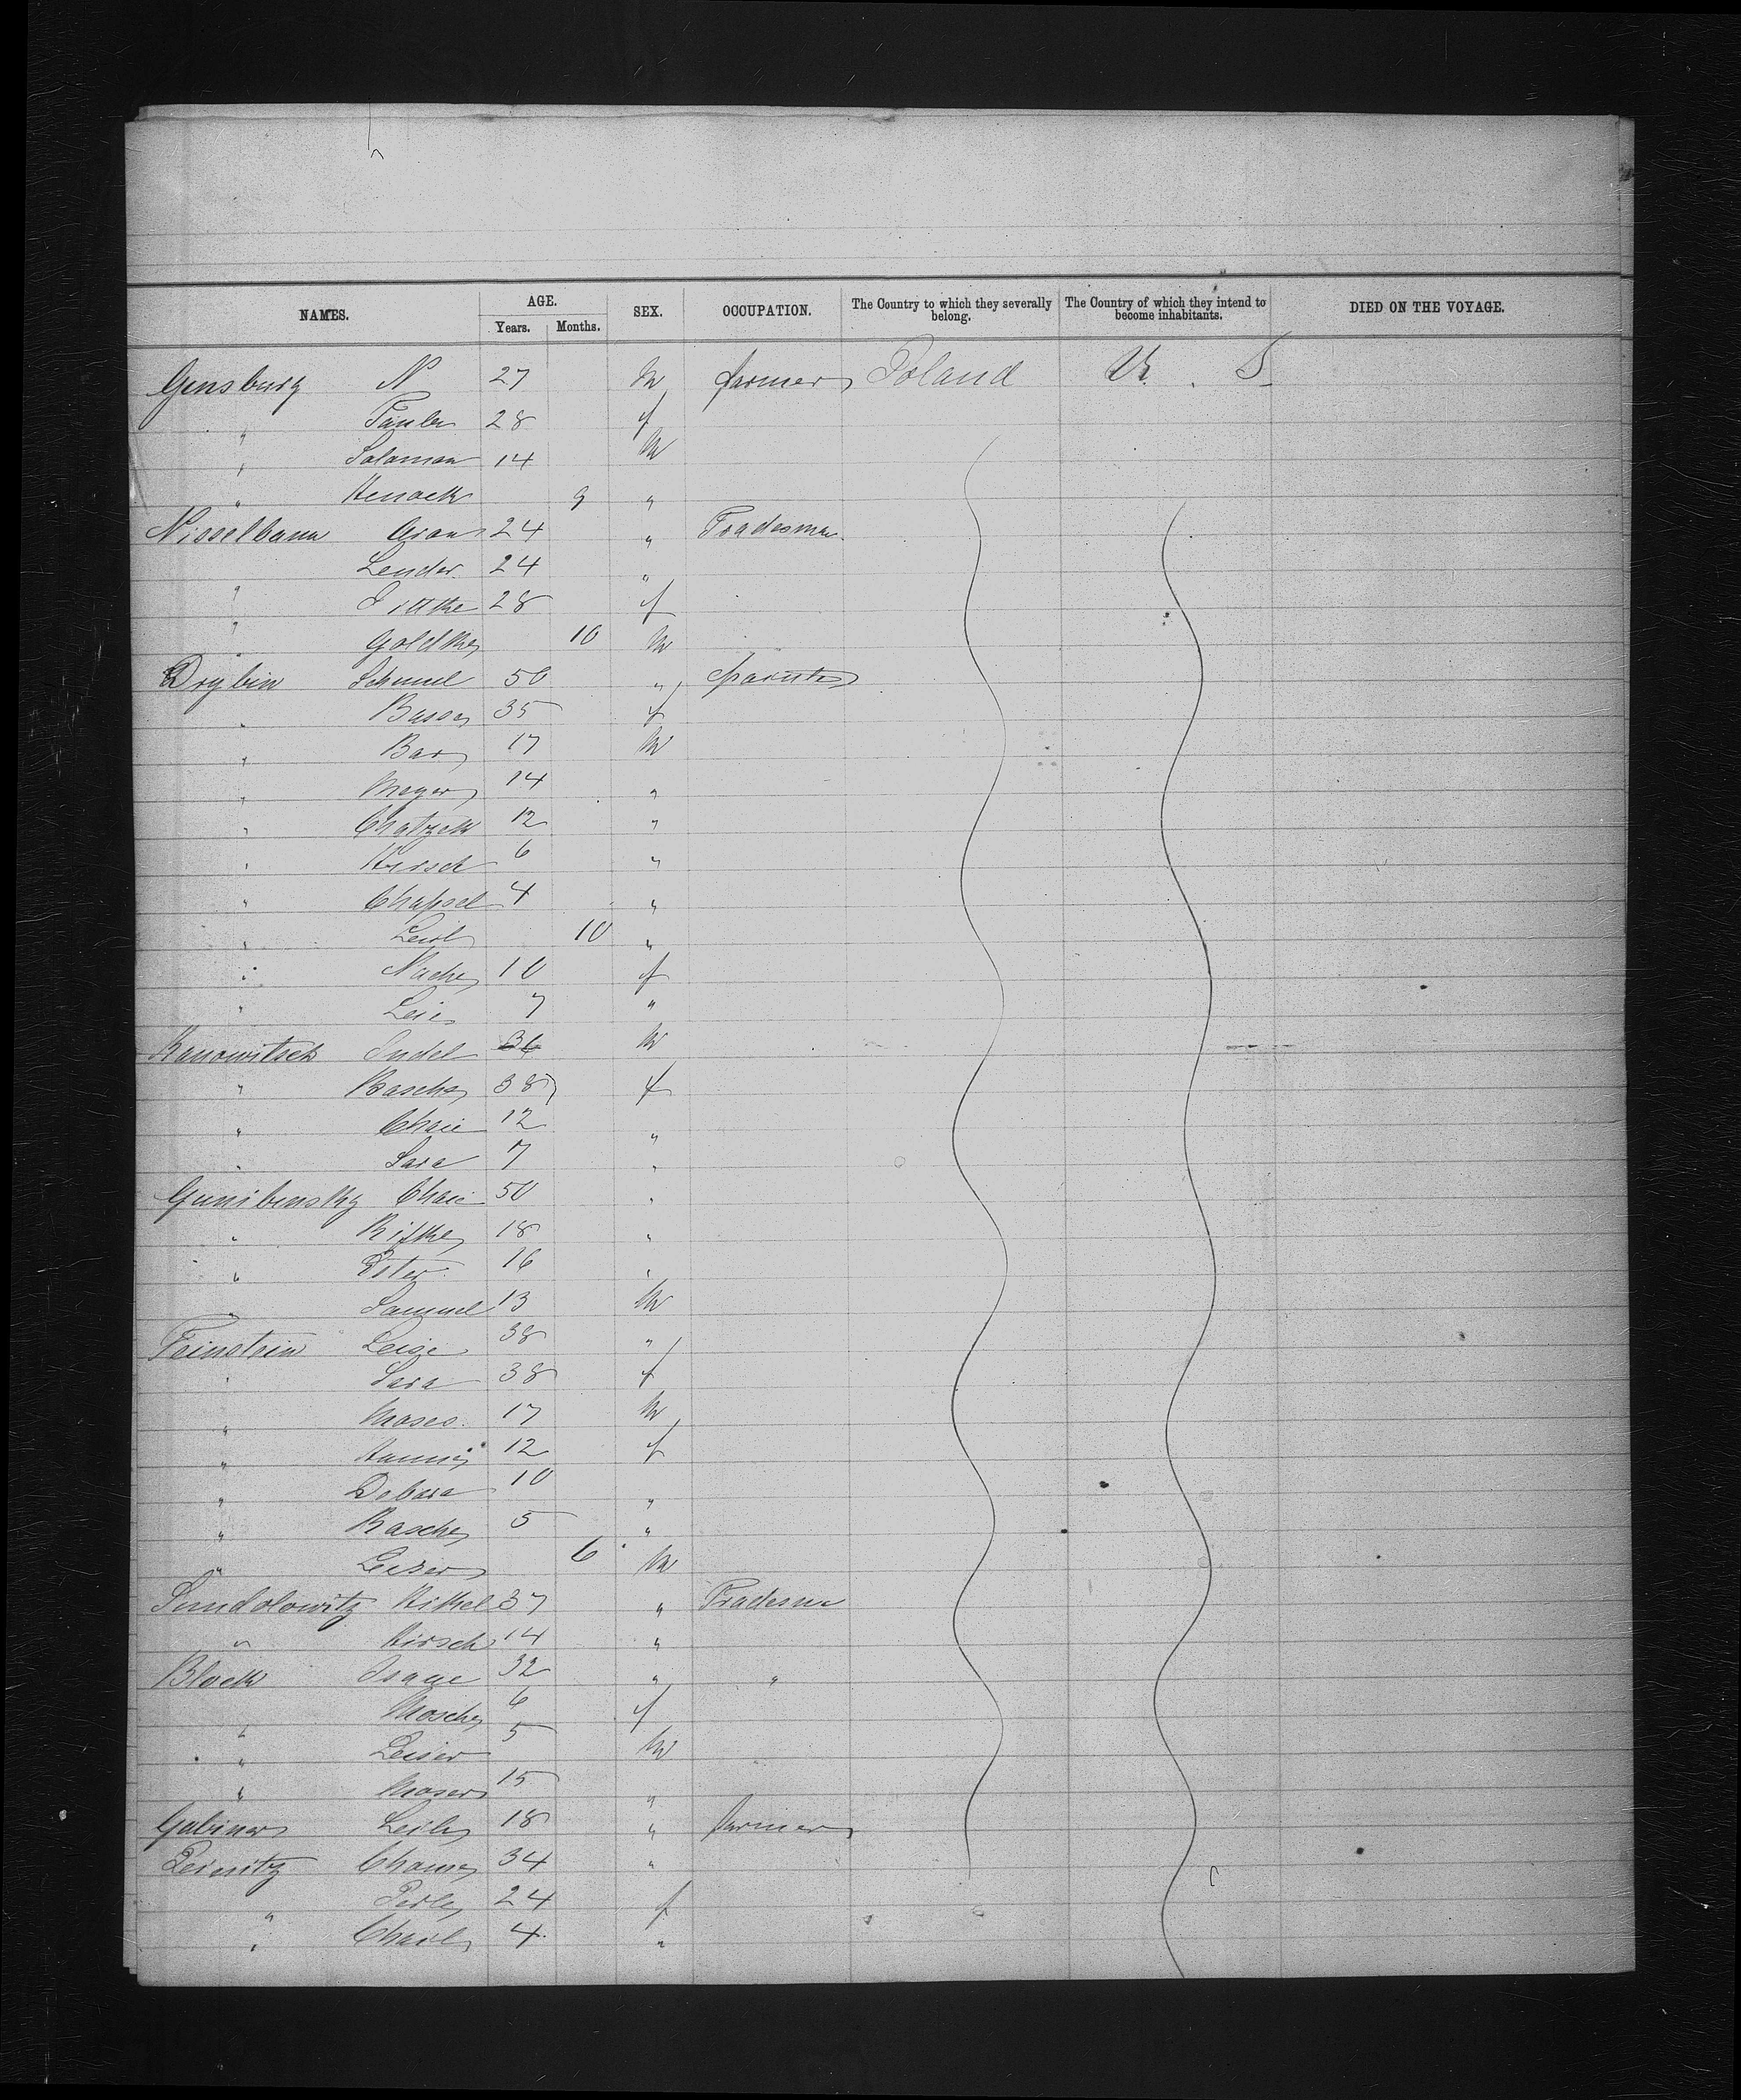 NAMES. AGE. SEX. OCCUPATION. The Country to which they severally belong. The Country of which they intend to become inhabitants. DIED ON THE VOYAGE.
Years. Months.
Gensburg N 27 M farmer Poland U. S.
" 28 f
" Salaman 14 M
" Henoch 9 "
Nisselbaum Aron 24 " Tradesman
Lender 24 "
" Sittke 28 f
" Goldke 10 M
Drybin Schmul 50 "
" Basse 35 f
" Bar 17 M
" Meyer 14 "
" Chatzek 12 "
" Hirsch 6 "
" Chapsel 4 "
" Leib 10 "
" Nache 10 f
" Leie 7 "
Kanowitsch Judel 36 M
" Basche 38 f
" Chaie 12 "
" Sara 7 "
Gunibensky Chaie 50 "
" Rifke 18 "
" Ester 16 "
" Samuel 13 M
Feinstein Leise 38 "
" Sara 38 f
" Moses 17 M
" Hannie 12 f
" Debora 10 "
" Rasche 5 "
" Leiser 6 M
Sundolowitz Hikel 37 " Tradesm
" Hirsch 14 "
Block Isaac 32 " "
" Mosche 6 f
" Leiser 5 M
" Moser 15 "
Gabiner Leib 18 " farmer
Leinitz Chame 34 "
" Perle 24 f
" Chaile 4 "